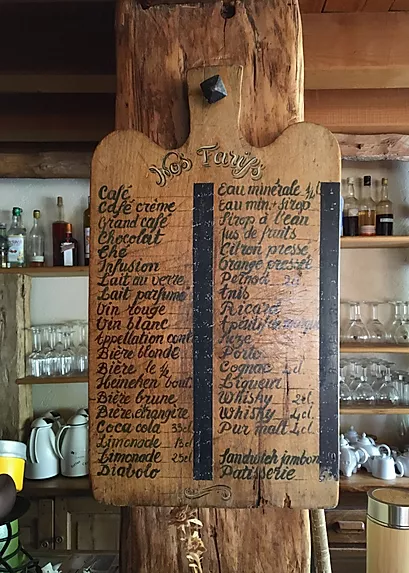 Nos Tarifs
Café
Café crème
Grand café
Chocolat
Thé
Infusion
Lait au verre
Lait parfumé
Vin rouge
Vin blanc
Appellation cont
Bière blonde
Bière le ¼
Heineken bout.
Bière brune
Bière étrangère
Coca cola 33cl
Limonade
Limonade 25cl
Diabolo
Eau minérale
Eau min. + sirop
Sirop à l'eau
Jus de fruits
Citron pressé
Orange pressée
Pernod 2cl
Anis
Ricard
Suze
Porto
Cognac cl.
Liqueur
Whisky 2cl.
Whisky 4cl.
Pur malt 4cl.
Sandwich jambon
Patisserie